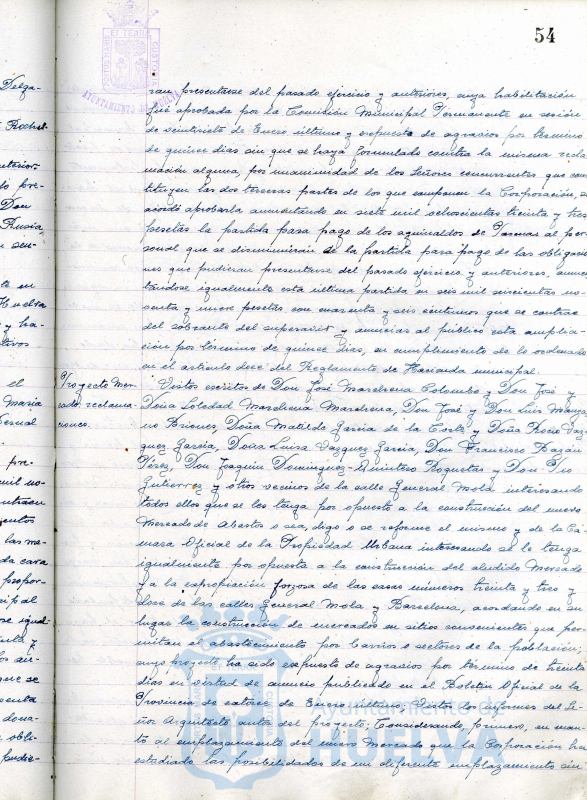 54
AYUNTAMIENTO DE HUELVA
ran presentarse del pasado ejercicio y anteriores, cuya habilitación
fué aprobada por la Comisión Municipal Permanente en sesión
de veintisiete de Enero último y expuesto de agravios por término
de quince días sin que se haya formulado contra la misma recla
mación alguna, por unanimidad de los Señores concurrentes que cons
tituyen las dos terceras partes de los que componen la Corporación, se
acordó aprobarla aumentando en siete mil ochocientas treinta y tres
pesetas la partida para pago de los aguinaldos de Pascuas al per
sonal que se disminuirán de la partida para pago de las obligacio
nes que pudieran presentarse del pasado ejercicio y anteriores, aumen
tándose igualmente esta última partida en seis mil seiscientas no
venta y nueve pesetas con cuarenta y seis céntimos que se contrae
del sobrante del superavit y anunciar al público esta amplia
ción por término de quince días, en cumplimiento de lo ordenado
en el artículo doce del Reglamento de Hacienda municipal.
Proyecto Mer
cado reclama
ciones.
Vistos escritos de Don José Marchena Colombo y Don José y
Doña Soledad Marchena Marchena, Don José y Don Luis Mauri
ño Briones, Doña Matilde Garcia de la Corte y Doña Rocio Vaz
quez Garcia, Doña Luisa Vazquez Garcia, Don Francisco Bazán
Pérez, Don Joaquin Dominguez-Quintero Roquetas y Don Pio
Gutierrez y otros vecinos de la calle General Mola interesando
todos ellos que se les tenga por opuesto a la construcción del nuevo
Mercado de Abastos o sea, digo o se reforme el mismo y de la Cá
mara Oficial de la Propiedad Urbana interesando se le tenga
igualmente por opuesta a la construcción del aludido Mercado
y a la expropiación forzosa de las casas números treinta y tres y
doce de las calles General Mola y Barcelona, acordando en su
lugar la construcción de mercados en sitios convenientes que per
mitan el abastecimiento por barrios o sectores de la población;
cuyo proyecto ha sido expuesto de agravios por término de treinta
días en virtud de anuncio publicado en el Boletín Oficial de la
Provincia de catorce de Enero último; Vistos los informes del Se
ñor Arquitecto autor del proyecto; Considerando, primero, en cuan
to al emplazamiento del nuevo Mercado que la Corporación ha
estudiado las posibilidades de un diferente emplazamiento sin
Ayuntamiento de
HUELVA